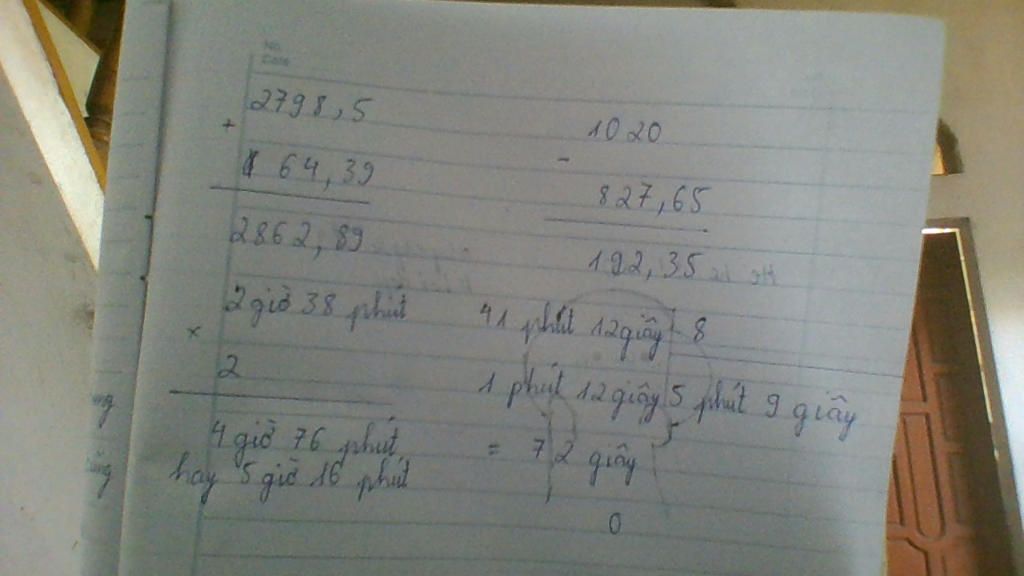 No.
Date
2798,5
+
64,39
2862,89
1020
-
827,65
192,35
2 giờ 38 phút
×
2
4 giờ 76 phút
hay 5 giờ 16 phút
41 phút 12 giây 8
1 phút 12 giây 5 phút 9 giây
= 72 giây
0